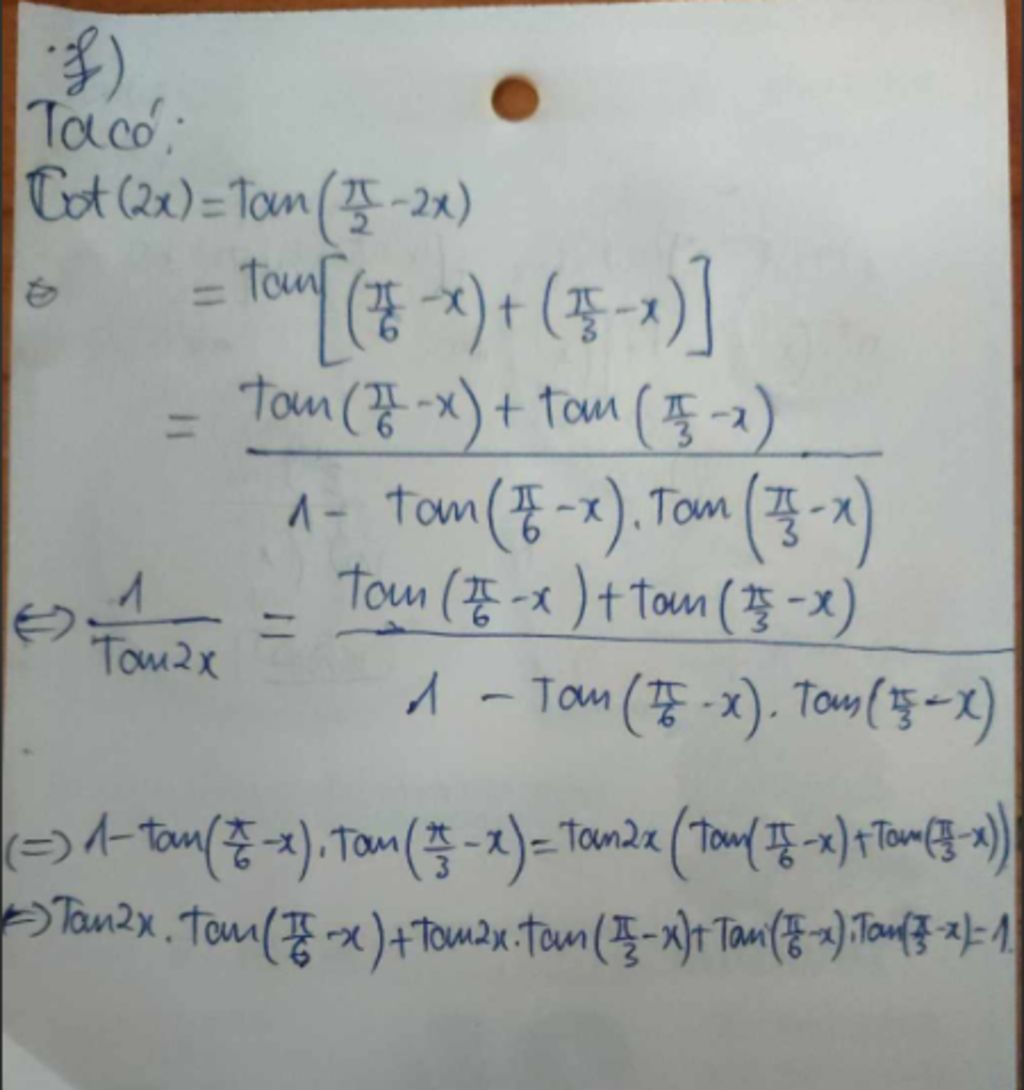 f)
Ta có:
Cot(2x) = Tan(π/2 - 2x)
= tan[(π/6 - x) + (π/3 - x)]
= (tan(π/6 - x) + tan(π/3 - x)) / (1 - tan(π/6 - x). Tan(π/3 - x))
⇔ 1/Tan2x = (Tan(π/6 - x) + tan(π/3 - x)) / (1 - Tan(π/6 - x). Tan(π/3 - x))
(=) 1 - tan(π/6 - x). Tan(π/3 - x) = Tan2x (Tan(π/6 - x) + Tan(π/3 - x))
⇔ Tan2x. Tan(π/6 - x) + tan2x. tan(π/3 - x) + Tan(π/6 - x). Tan(π/3 - x) = 1.